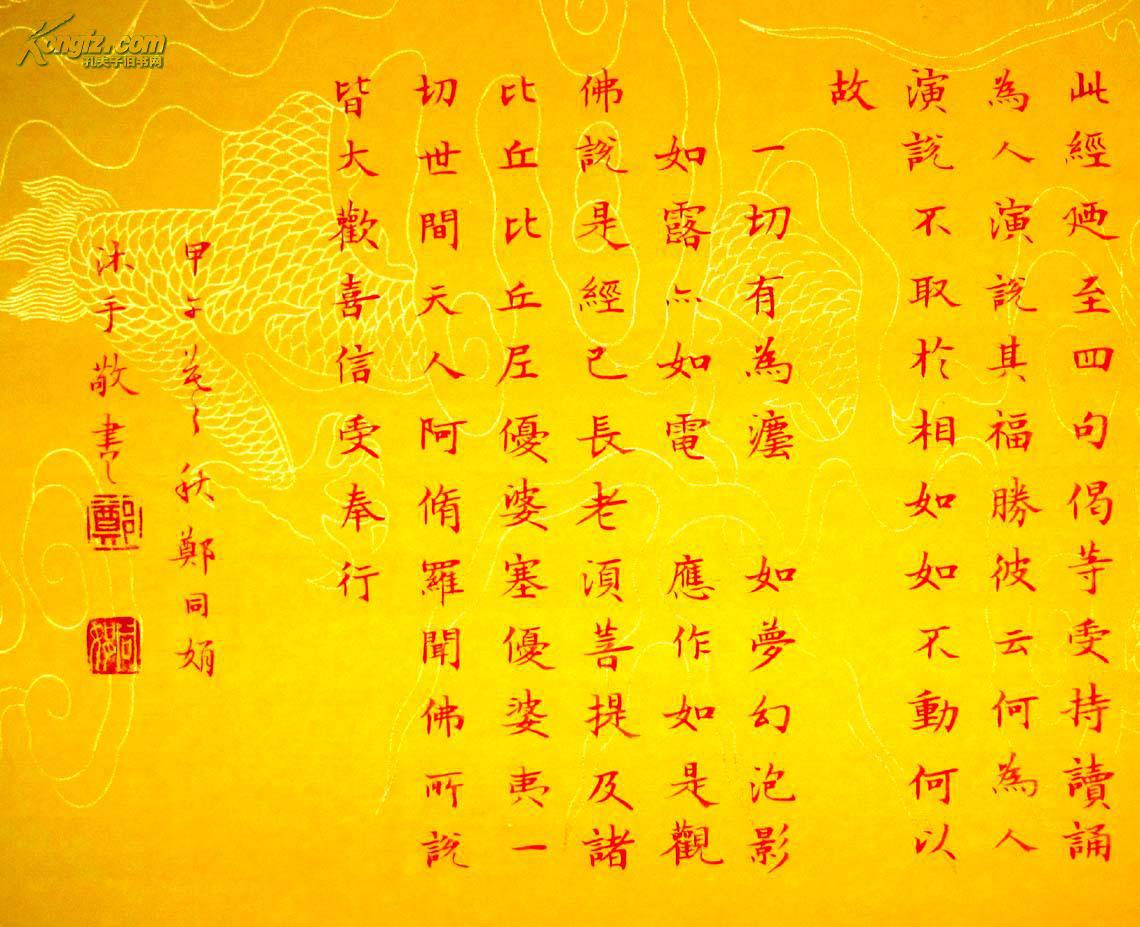 Kongfz.com
孔夫子旧书网
此經廼至四句偈等受持讀誦
為人演說其福勝彼云何為人
演說不取於相如如不動何以
故
一切有為灋 如夢幻泡影
如露亦如電 應作如是觀
佛說是經已長老湏菩提及諸
比丘比丘尼優婆塞優婆夷一
切世間天人阿脩羅聞佛所說
皆大歡喜信受奉行
甲午秋鄭同娟
沐手敬書
鄭